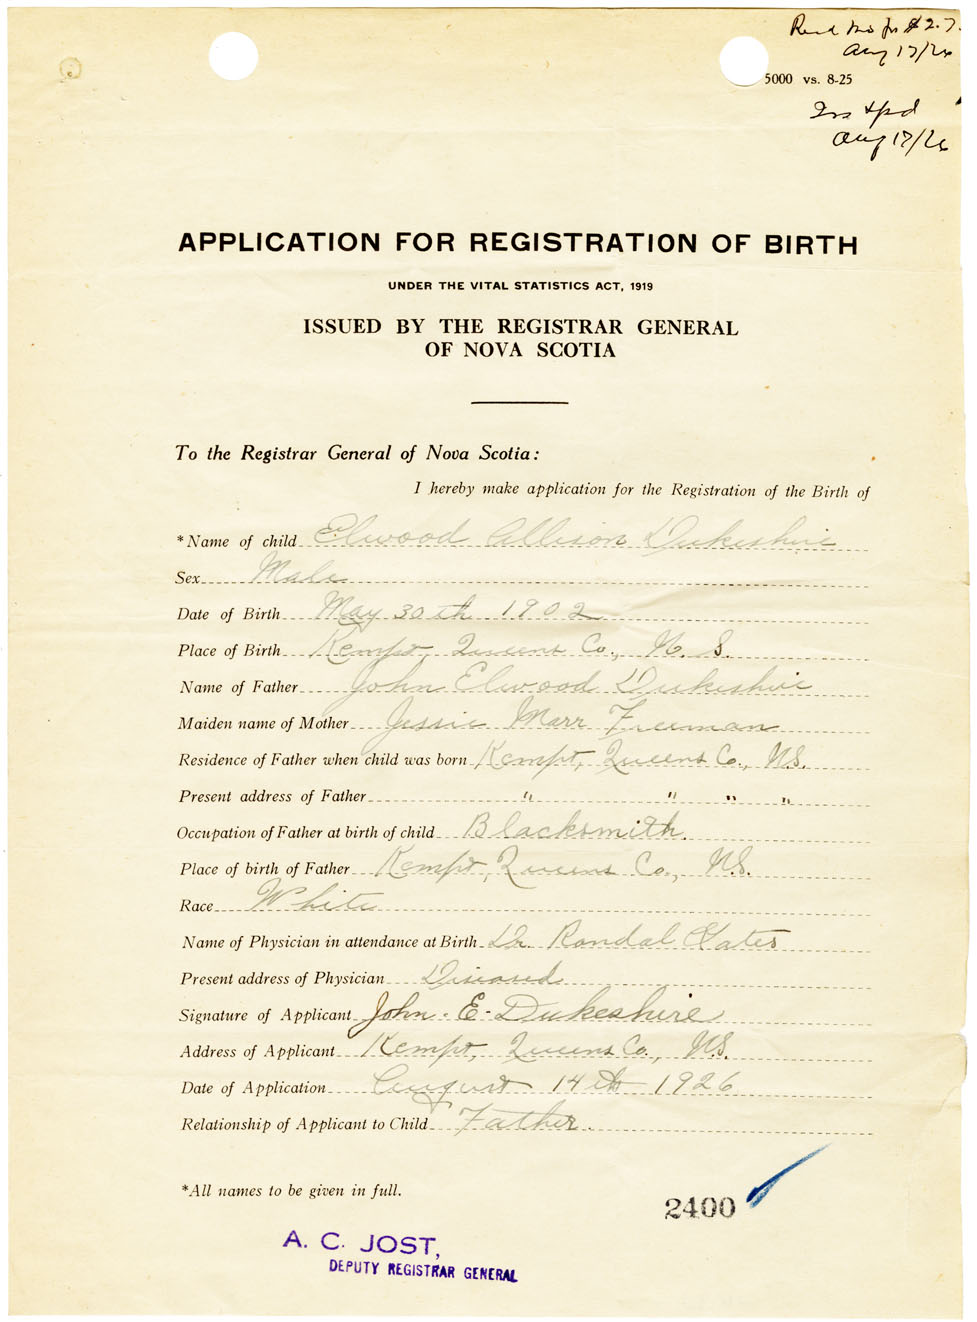 Rec'd mo for $2.7
Aug 17/26
5000 vs. 8-25
Ins & pd
Aug 17/26
APPLICATION FOR REGISTRATION OF BIRTH
UNDER THE VITAL STATISTICS ACT, 1919
ISSUED BY THE REGISTRAR GENERAL
OF NOVA SCOTIA
To the Registrar General of Nova Scotia:
I hereby make application for the Registration of the Birth of
*Name of child Elwood Allison Dukeshire
Sex Male
Date of Birth May 30th 1902
Place of Birth Kempt, Queens Co., N. S.
Name of Father John Elwood Dukeshire
Maiden name of Mother Jessie Marr Freeman
Residence of Father when child was born Kempt, Queens Co., N.S.
Present address of Father " " " "
Occupation of Father at birth of child Blacksmith.
Place of birth of Father Kempt, Queens Co., N.S.
Race White
Name of Physician in attendance at Birth Dr. Randal
Present address of Physician Diseased
Signature of Applicant John. E. Dukeshire
Address of Applicant Kempt, Queens Co., N.S.
Date of Application August 14th 1926
Relationship of Applicant to Child Father.
*All names to be given in full.
2400
A. C. JOST,
DEPUTY REGISTRAR GENERAL